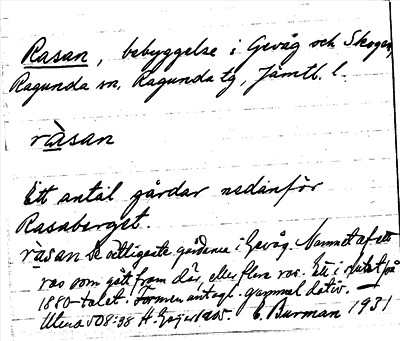 Rasan, bebyggelse i Gevåg och Skogen,
Ragunda sn, Ragunda tg, Jämtl. l.
ràsan
Ett antal gårdar nedanför
Rasaberget.
ràsan De ostligaste gårdarna i Gevåg. Namnet af ett
ras som gått fram där, eller flera ras. Ett i slutet på
1880-talet. Formen antagl. gammal dativ.
Utens 508:98 H. Geijer 1905. E. Burman 1931